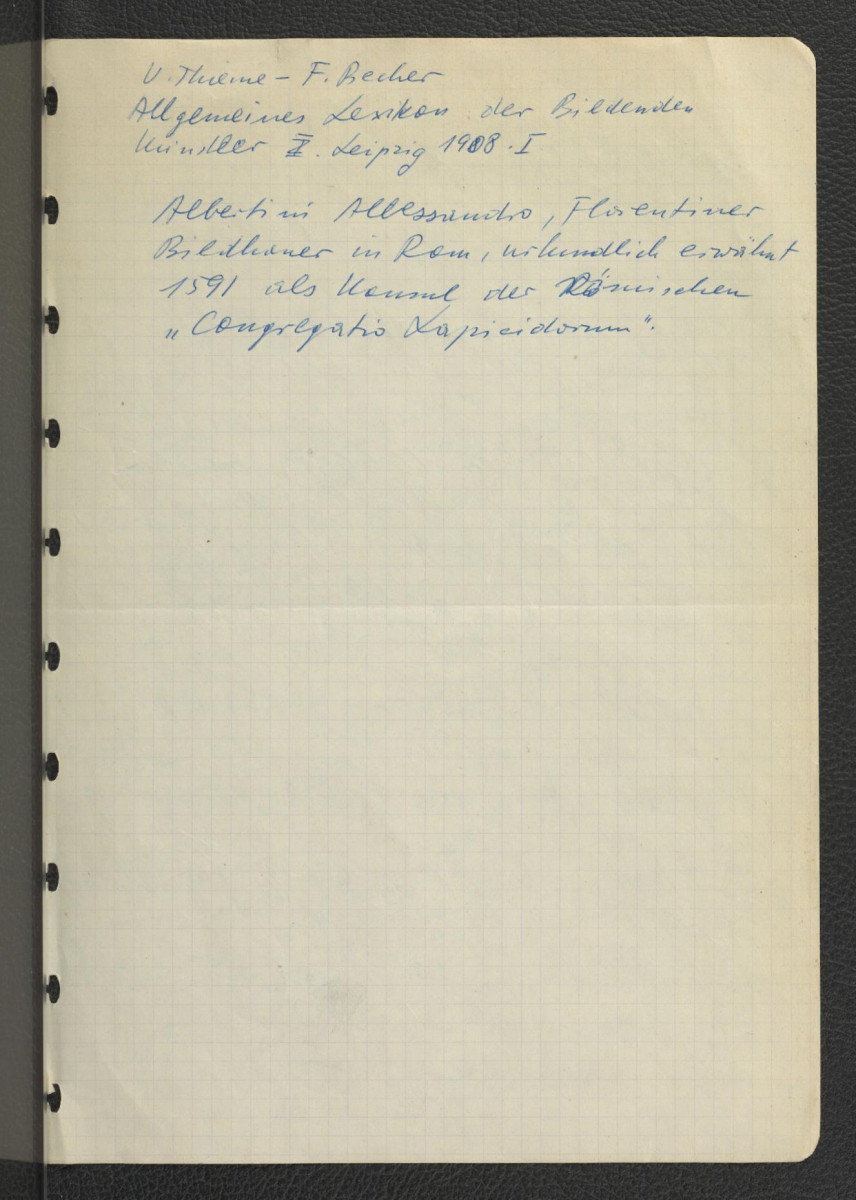 U. Thieme - F. Becher
Allgemeines Lexikon der Bildenden
Künstler II. Leipzig 1908. I
Albertini Allessandro, Florentiner
Bildhauer in Rom, urkundlich erwähnt
1591 als Konsul der Römischen
„Congregatio Lapicidorum".